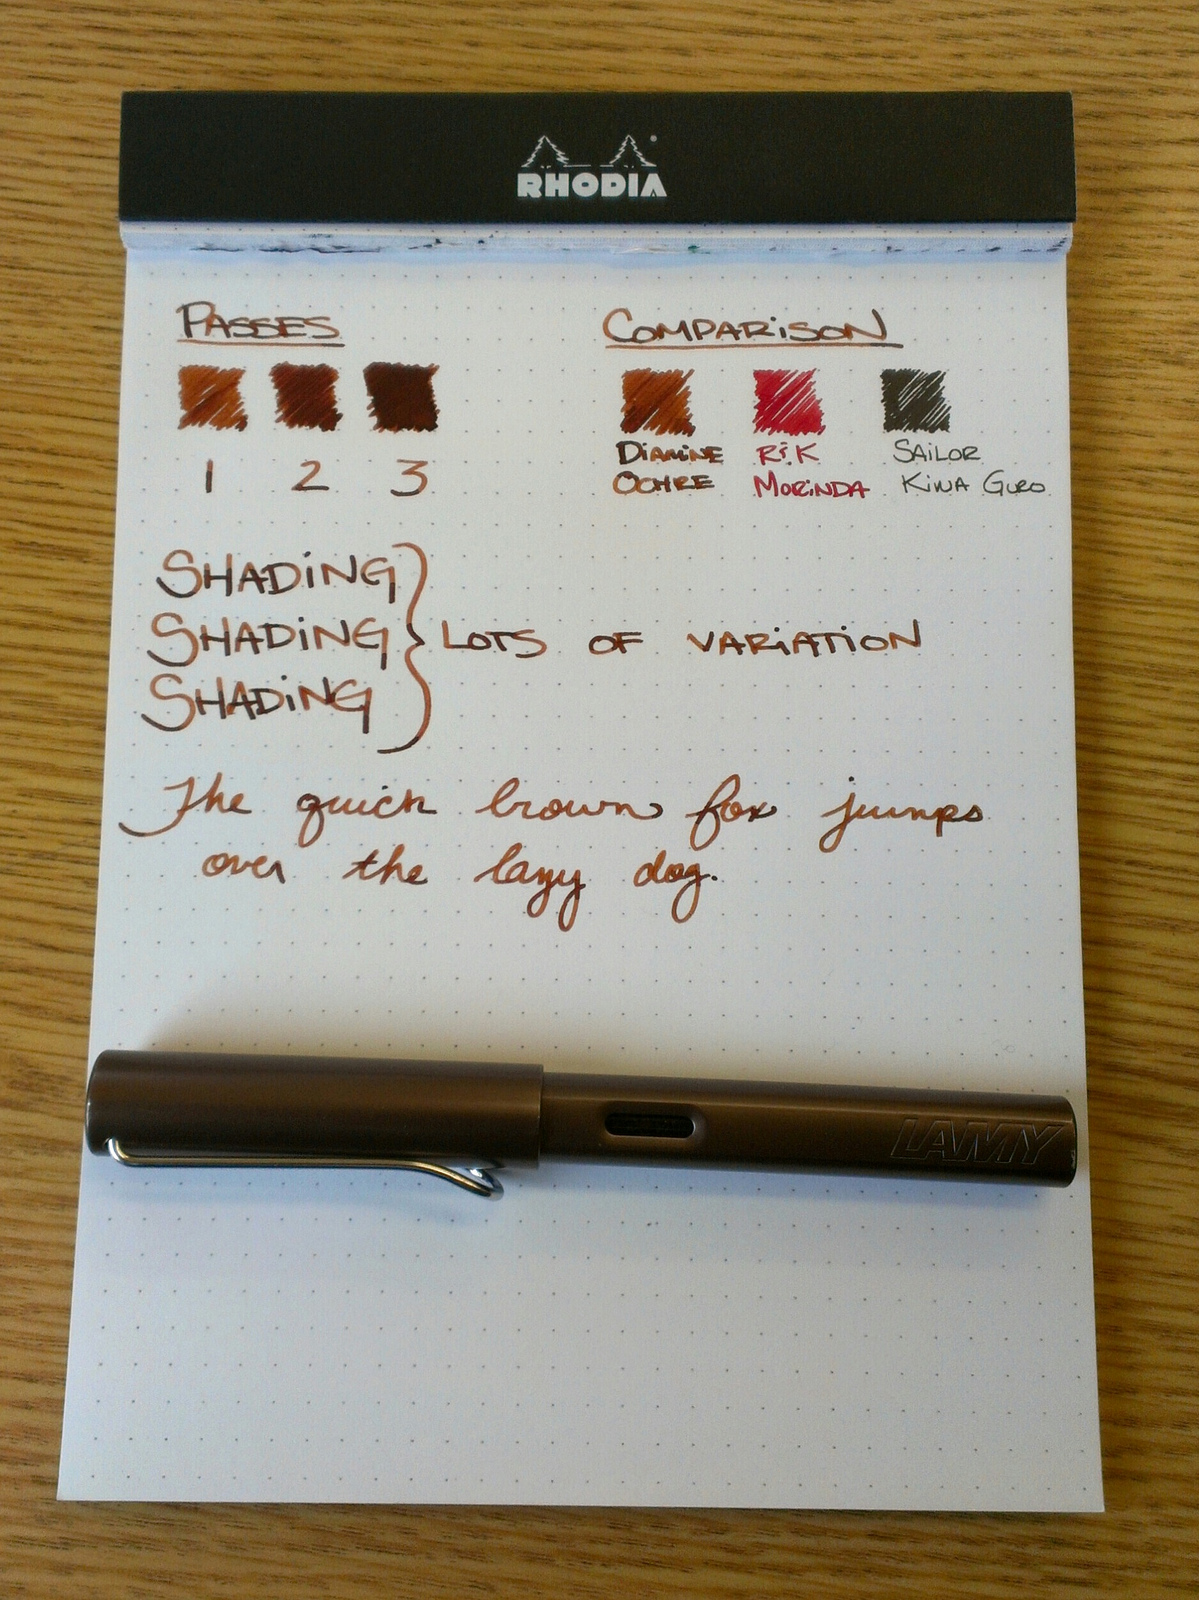 RHODIA
PASSES
1 2 3
COMPARiSON
DiAMiNE OCHRE
R&K MORiNDA
SAiLOR KiWA GURO
SHADiNG
SHADiNG
SHADiNG
LOTS OF VARiATiON
The quick brown fox jumps
over the lazy dog.
LAMY